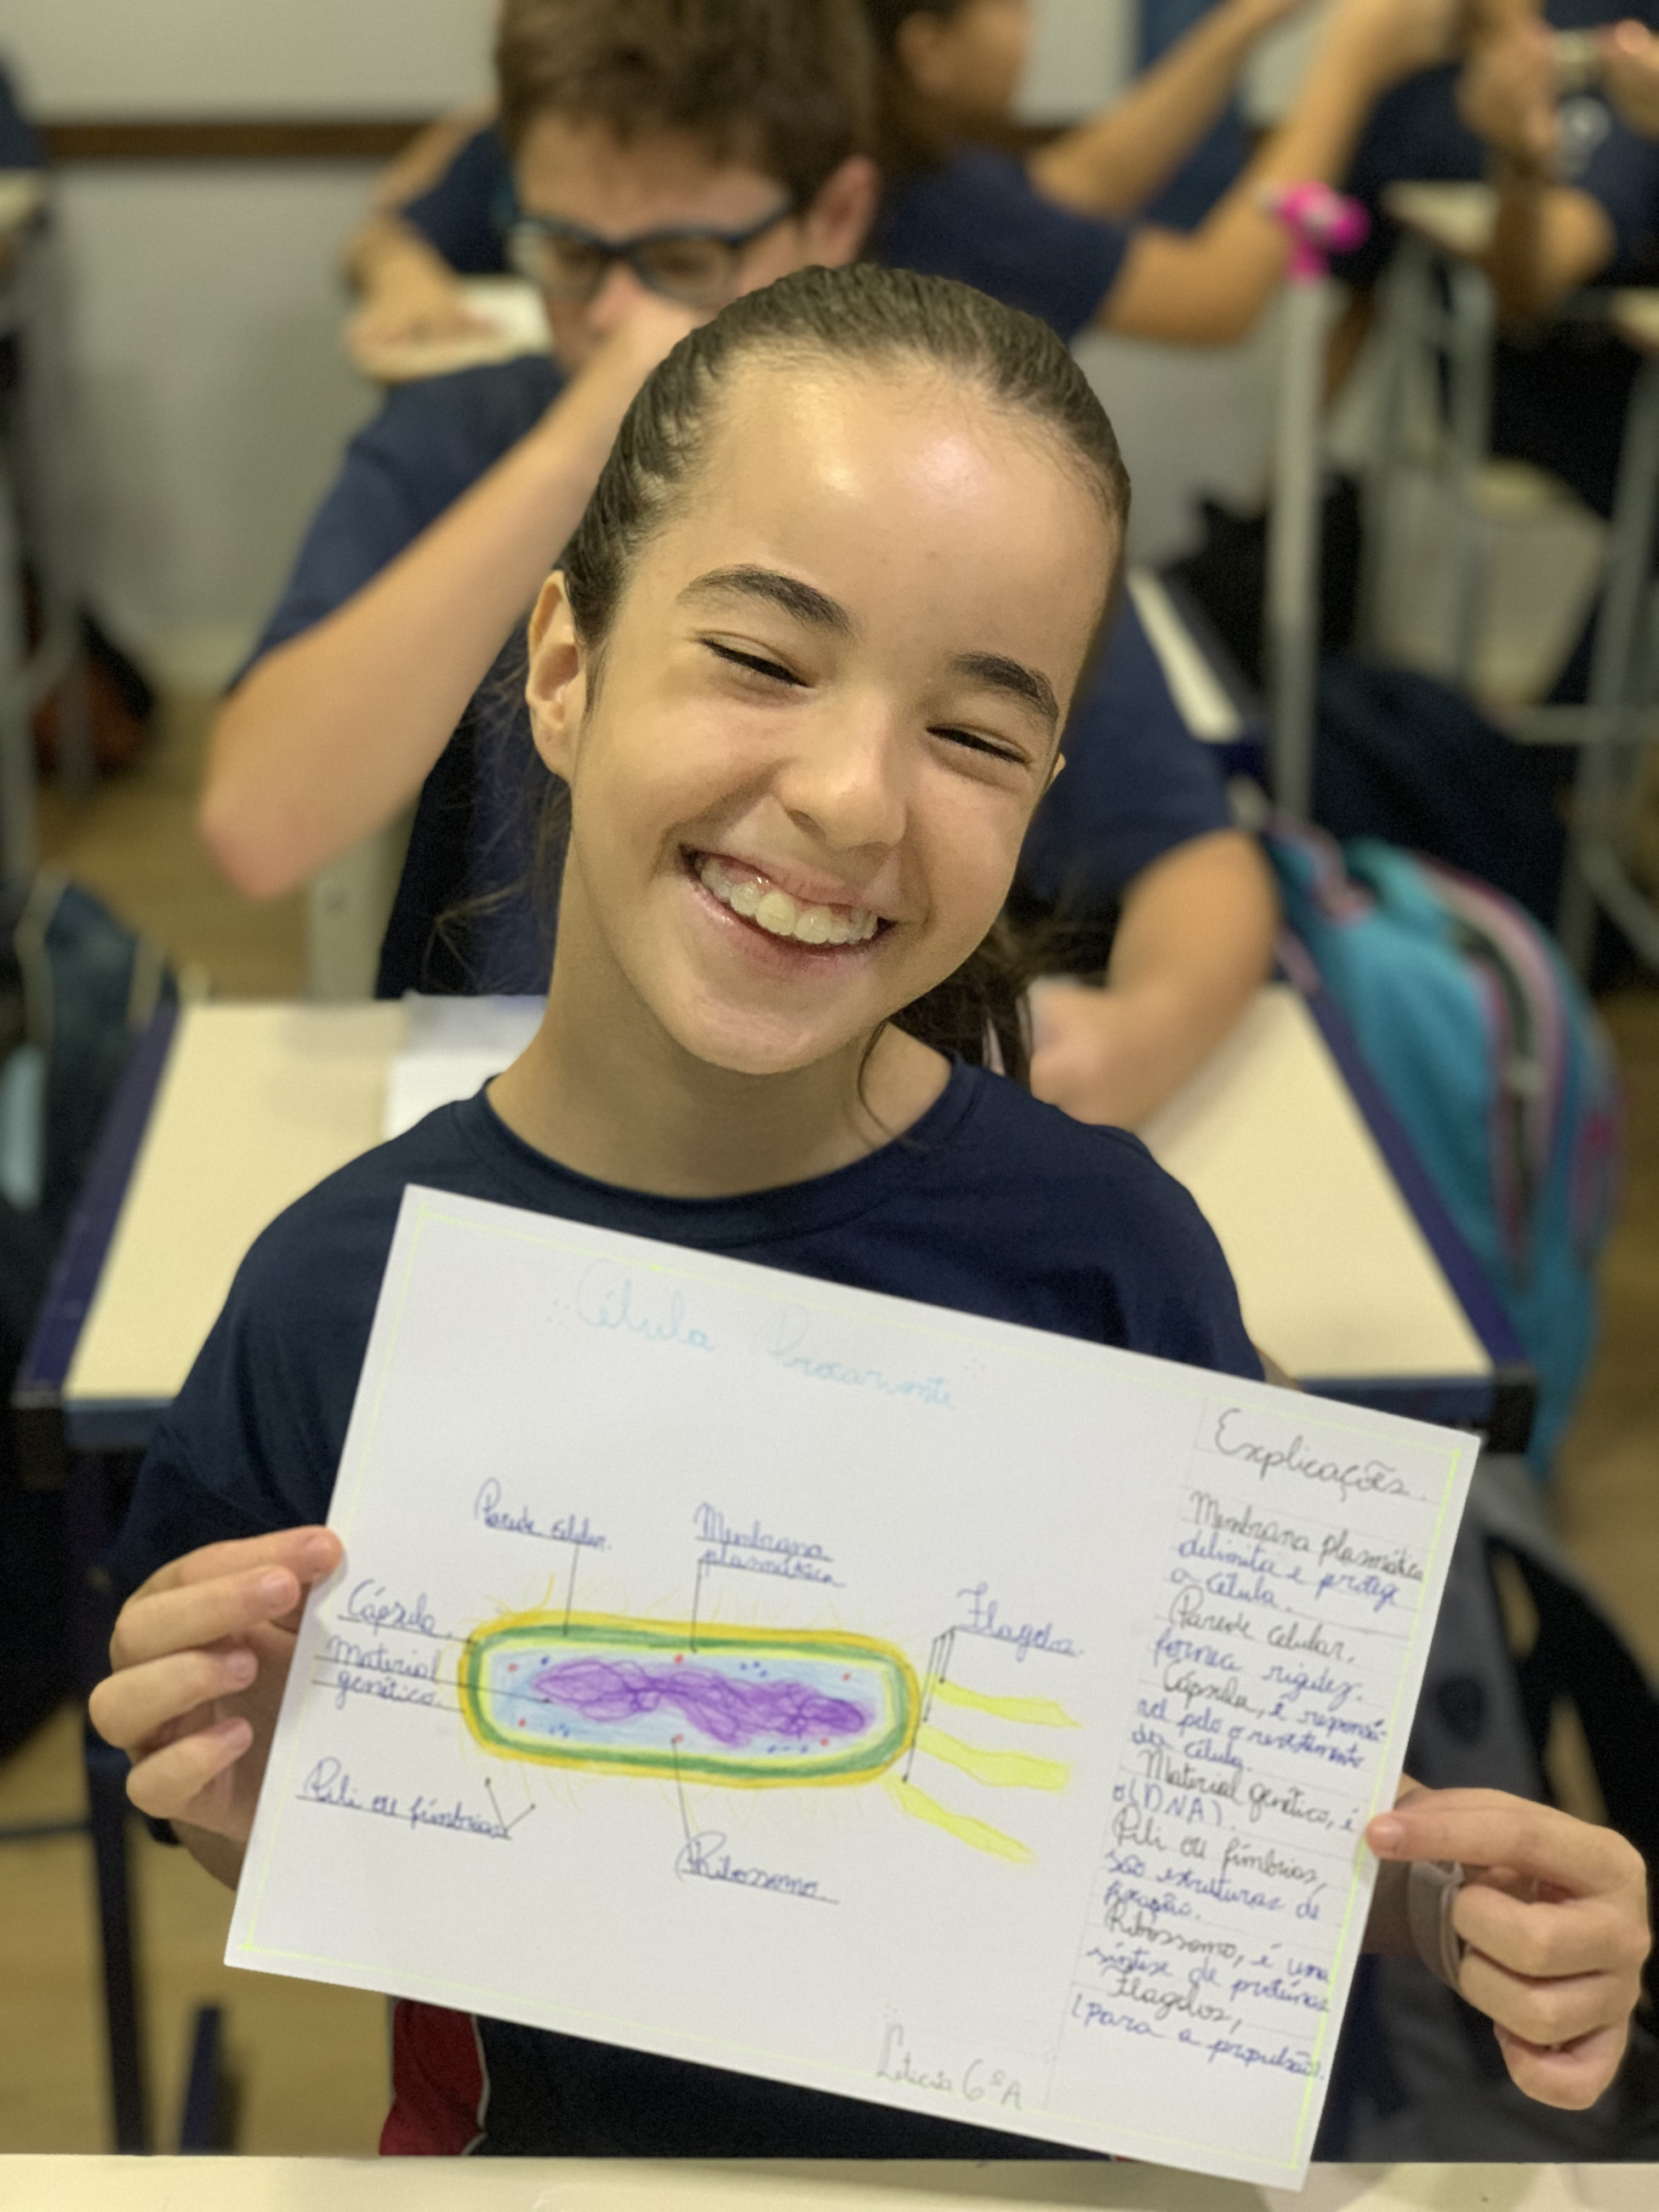 Célula Procarionte
Parede celular.
Membrana
plasmática
Cápsula.
Material
genético.
Flagelos.
Pili ou fímbrias
Ribossomo.
Explicações.
Membrana plasmática
delimita e protege
a célula.
Parede celular,
fornea rigidez.
Cápsula, é responsá-
vel pelo o revestimento
da célula.
Material genético, é
o (DNA).
Pili ou fímbrias,
são estruturas de
fixação.
Ribossomo, é uma
síntese de proteínas
Flagelos,
(para a propulsão).
Letícia 6ºA